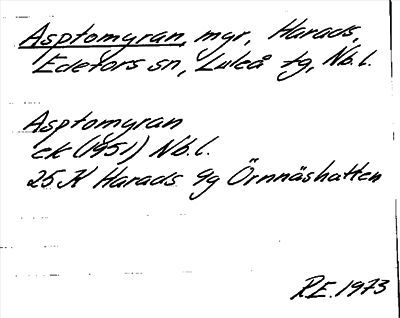 Asptomyran, myr, Harads,
Edefors sn, Luleå tg, Nb.l.
Asptomyran
ek (1951) Nb.l.
25 K Harads 9g Örnnäshatten
R.E. 1973